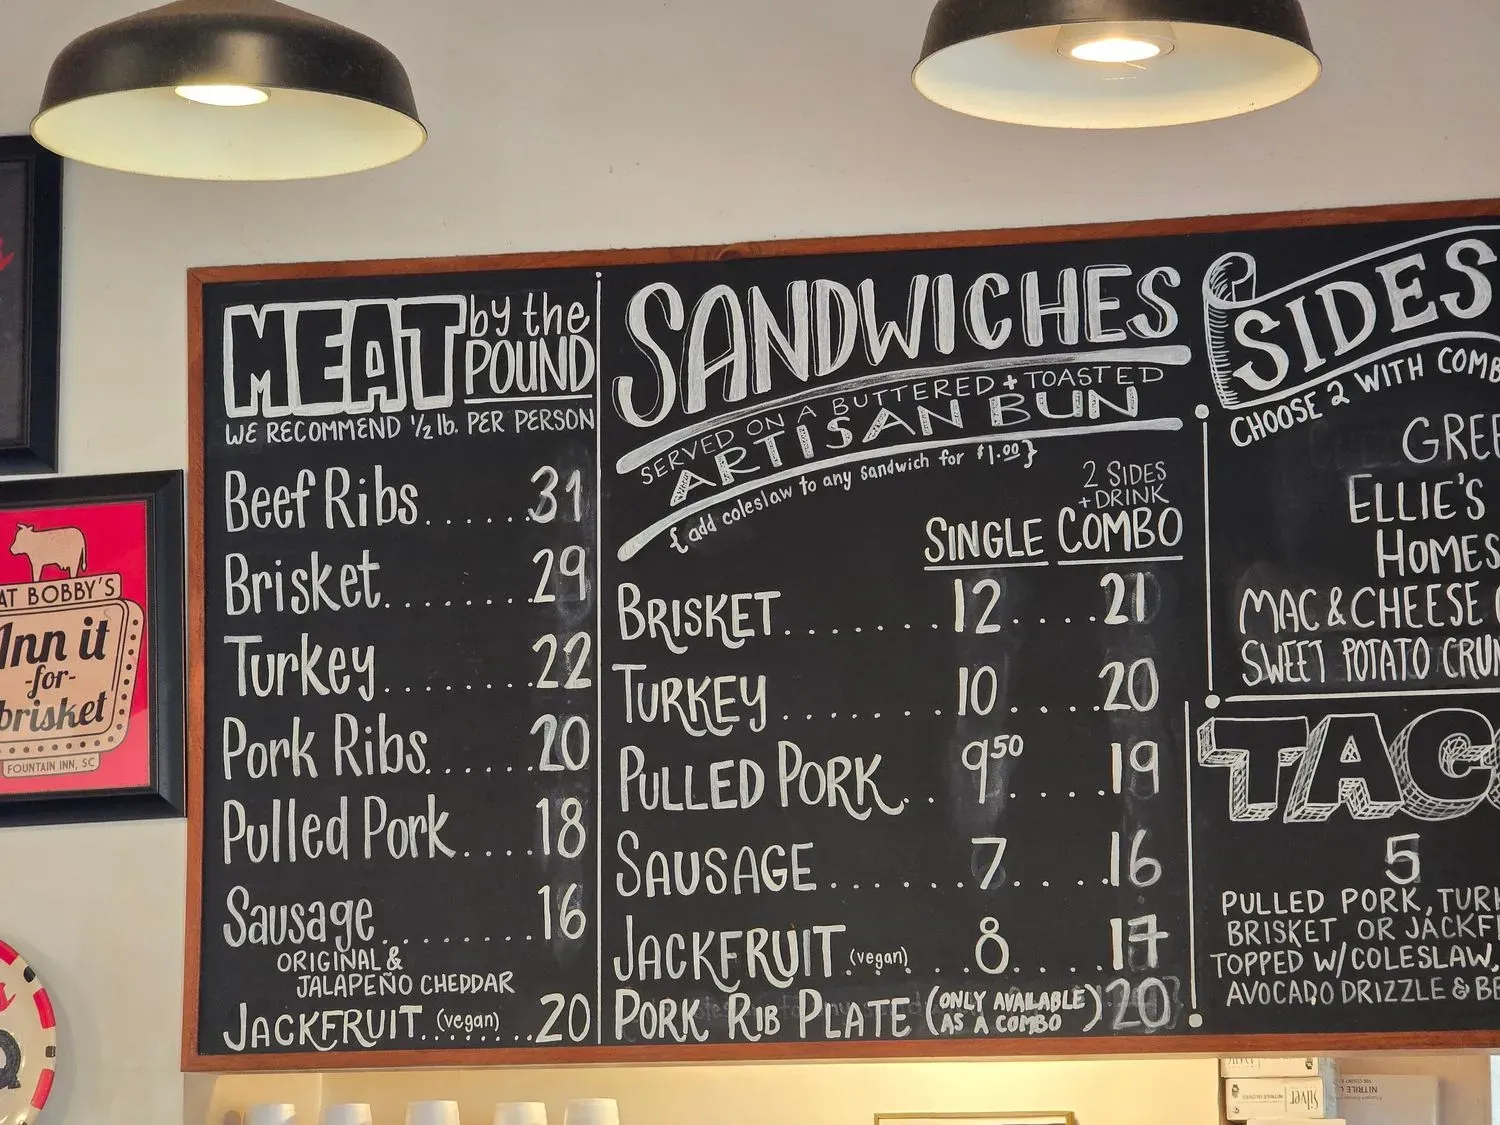 AT BOBBY'S
Inn it
-for-
brisket
FOUNTAIN INN, SC
MEAT by the
POUND
WE RECOMMEND 1/2 lb. PER PERSON
Beef Ribs......31
Brisket........29
Turkey........22
Pork Ribs......20
Pulled Pork....18
Sausage........16
ORIGINAL &
JALAPEÑO CHEDDAR
JACKFRUIT (vegan)........20
SANDWICHES
SERVED ON A BUTTERED + TOASTED
ARTISAN BUN
{add coleslaw to any sandwich for $1.00}
2 SIDES
+DRINK
SINGLE COMBO
BRISKET........12....21
TURKEY........10....20
PULLED PORK..9.50....19
SAUSAGE.......7....16
JACKFRUIT (vegan)...8....17
PORK RIB PLATE (ONLY AVAILABLE AS A COMBO) 20
SIDES
CHOOSE 2 WITH COMB
GREE
ELLIE'S
HOMES
MAC & CHEESE
SWEET POTATO CRUN
TACO
5
PULLED PORK, TURK
BRISKET OR JACKF
TOPPED W/ COLESLAW,
AVOCADO DRIZZLE & BE
NITRILE
Silver
NITRILE GLOVES